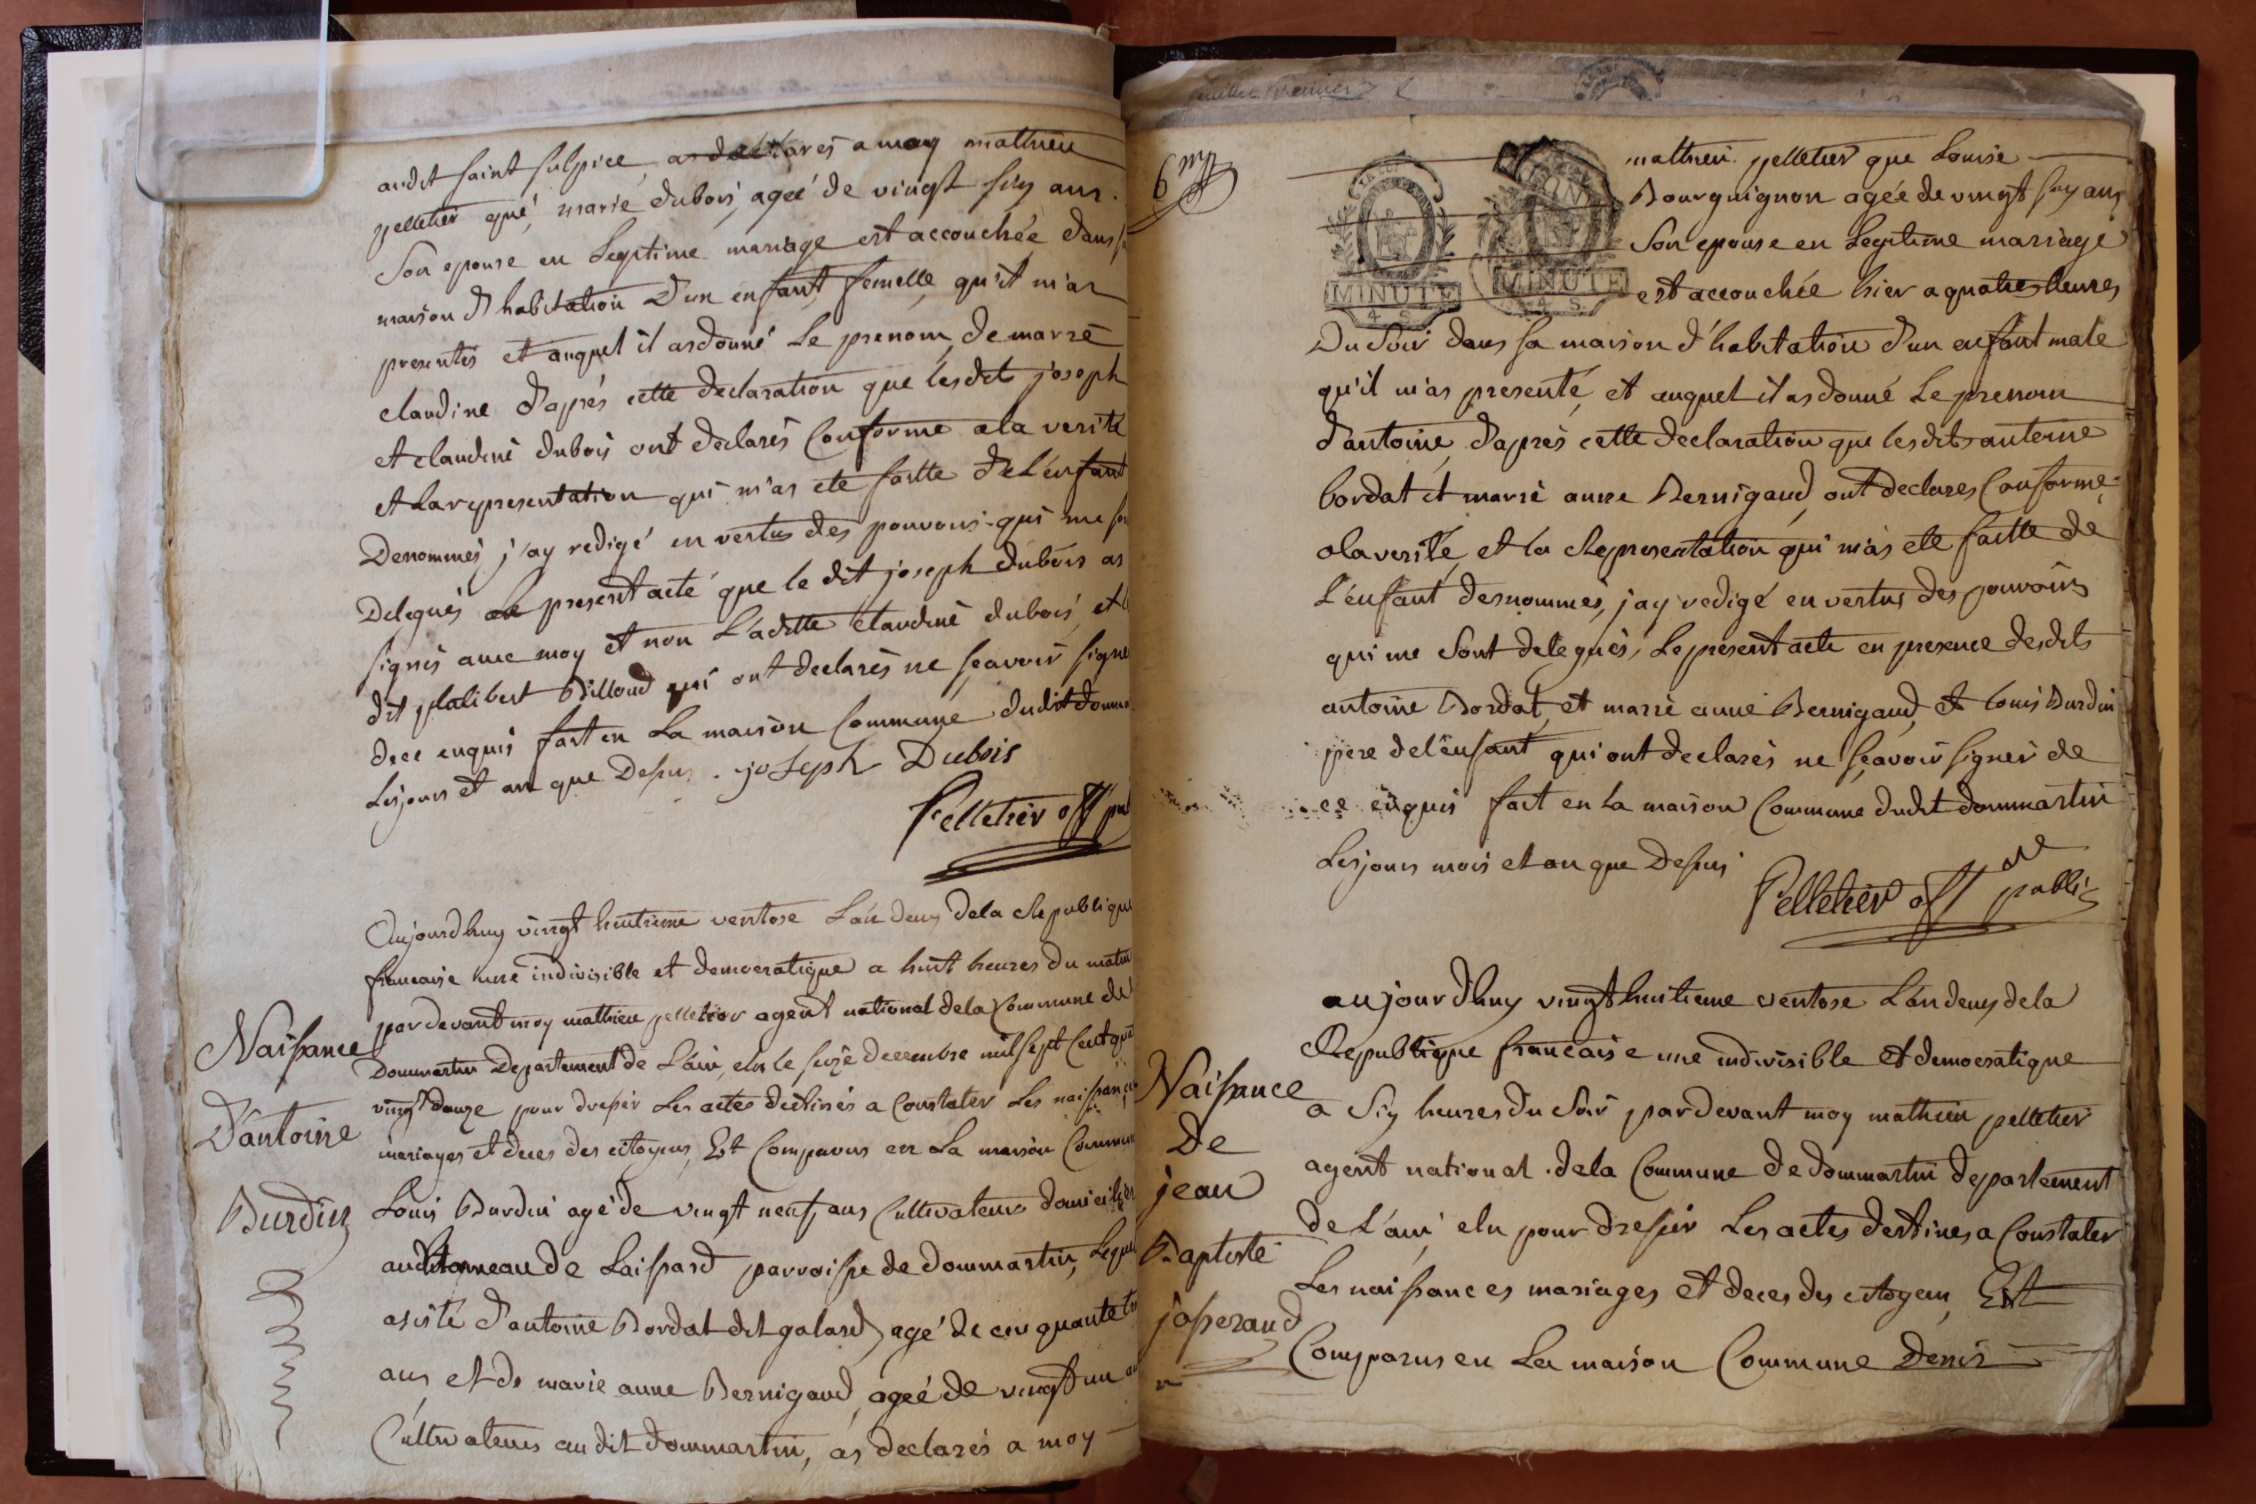 audit saint sulpice, as declarés a moy mathieu
pelletier que, marie dubois, ageé de vingt six ans
Son epouse en Legitime mariage est accouchée dans sa
maison d'habitation d'un enfant femelle, qu'il m'as
presentés et auquel il as donné Le prenom, de marie
claudine d'aprés cette declaration que lesdits joseph
et claudine dubois ont declarés Conforme a la verité
et La representation qui m'as ete faitte de L'enfant
Denommés j'ay redigé en vertus des pouvoirs qui me son
Delegués Le present acte que le dit joseph dubois as
signés avec moy et non L'aditte claudine dubois, et le
dit philibert Billoud qui ont declarés ne sçavoir signe
de ce enquis fait en La maison Commune dudit domm
Les jours et an que Desus. joseph Dubois
Pelletier off pu
Naissance
D'antoine
Burdin
Aujourdhuy vingt huitieme ventose L'an deux dela Republique
francaise une indivisible et democratique a huit heures du matin
par devant moy mathieu pelletier agent national dela Commune de
Dommartin Departement de L'ain, elu le seize decembre mil sept Cent quat
vingt douze pour dresser Les actes destinés a Constater Les naissances
mariages et deces des citoyens, Est Comparus en La maison Commun
Louis Burdin agé de vingt neuf ans Cultivateur domicilié
audit hameau de Laissard parroisse de dommartin, Lequel
asisté d'antoine Bordat dit galard, agé de cinquante
ans et de marie anne Bernigaud, ageé de vingt un an
Cultivateurs audit dommartin, as declarés a moy
6
MINUTE
4 S
MINUTE
4 S
mathieu pelletier que Louise
Bourguignon agée de vingt six ans
Son epouse en Legitime mariage
est accouchée hier a quatre heures
Du Soir dans sa maison d'habitation d'un enfant male
qu'il m'as presenté, et auquel il as donné Le prenom
d'antoine, d'aprés cette declaration que lesdits antoine
bordat et marie anne Bernigaud, ont declares Conforme
a la verité, et la Representation qui m'as ete faitte de
L'enfant denommés, j'ay redigé en vertus des pouvoirs
qui me sont delegués, Le present acte en presence desdits
antoine Bordat, et marie anne Bernigaud, et louis Burdin
pere de l'enfant qui ont declarés ne sçavoir signer de
ce enquis fait en La maison Commune dudit dommartin
Les jours mois et an que Desus
Pelletier off public
Naissance
De
jean
Baptiste
josserand
aujourdhuy vingt huitieme ventose L'an deux dela
Republique francaise une indivisible et democratique
a six heures du Soir par devant moy mathieu pelletier
agent national dela Commune de dommartin departement
de L'ain, elu pour dresser Les actes destines a Constater
Les naissances mariages et deces des citoyens, Est
Comparus en La maison Commune Denis